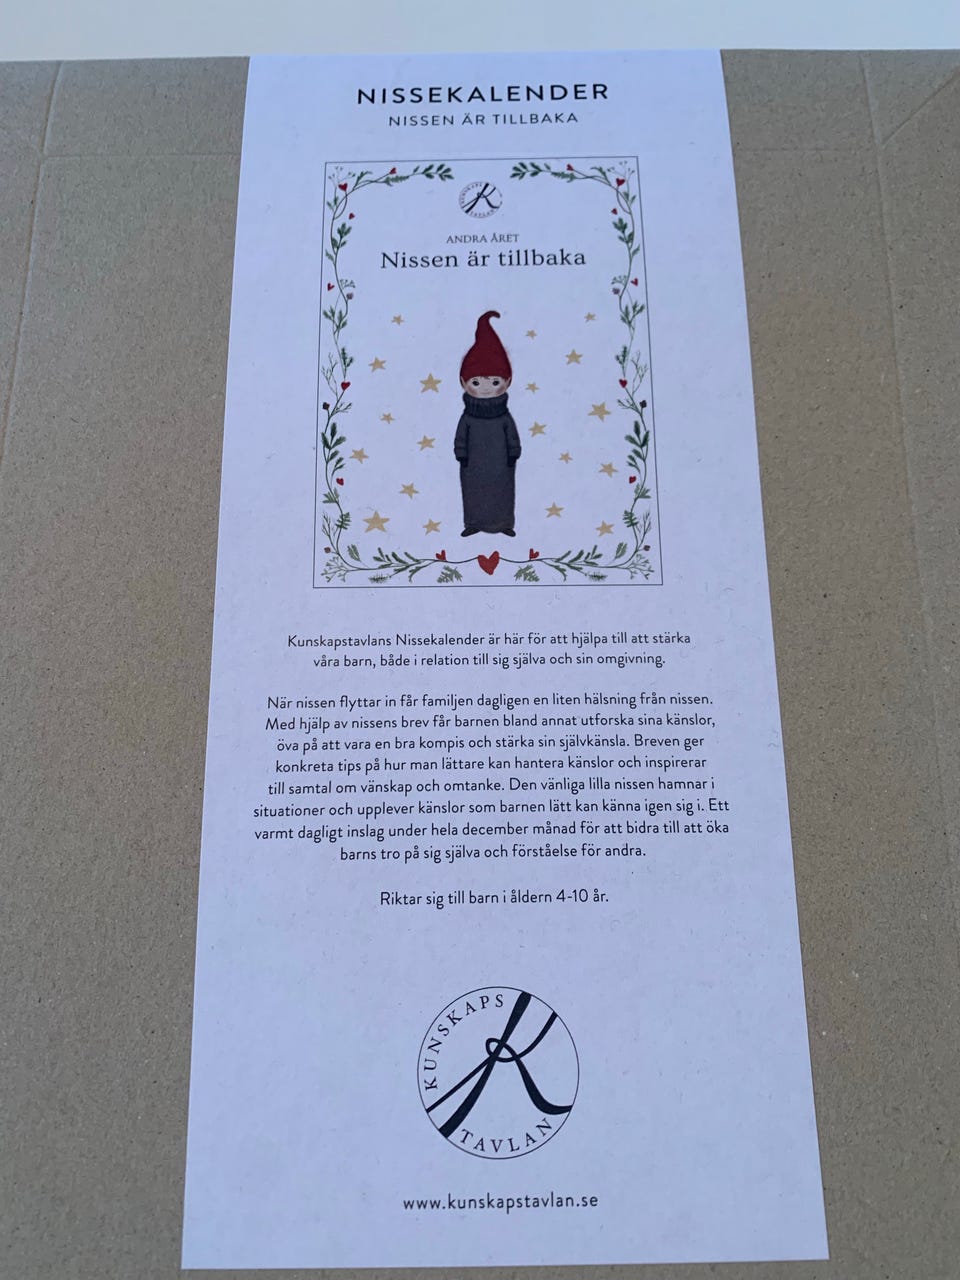 NISSEKALENDER
NISSEN ÄR TILLBAKA
KUNSKAPS
K
TAVLAN
ANDRA ÅRET
Nissen är tillbaka
Kunskapstavlans Nissekalender är här för att hjälpa till att stärka
våra barn, både i relation till sig själva och sin omgivning.
När nissen flyttar in får familjen dagligen en liten hälsning från nissen.
Med hjälp av nissens brev får barnen bland annat utforska sina känslor,
öva på att vara en bra kompis och stärka sin självkänsla. Breven ger
konkreta tips på hur man lättare kan hantera känslor och inspirerar
till samtal om vänskap och omtanke. Den vänliga lilla nissen hamnar i
situationer och upplever känslor som barnen lätt kan känna igen sig i. Ett
varmt dagligt inslag under hela december månad för att bidra till att öka
barns tro på sig själva och förståelse för andra.
Riktar sig till barn i åldern 4-10 år.
KUNSKAPS
K
TAVLAN
www.kunskapstavlan.se